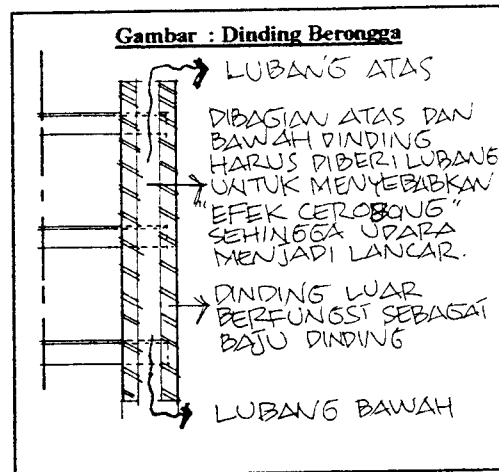 Gambar : Dinding Berongga
LUBANG ATAS
DIBAGIAN ATAS DAN
BAWAH DINDING
HARUS DIBERI LUBANG
UNTUK MENYEBABKAN
"EFEK CEROBONG"
SEHINGGA UDARA
MENJADI LANCAR.
DINDING LUAR
BERFUNGSI SEBAGAI
BAJU DINDING
LUBANG BAWAH